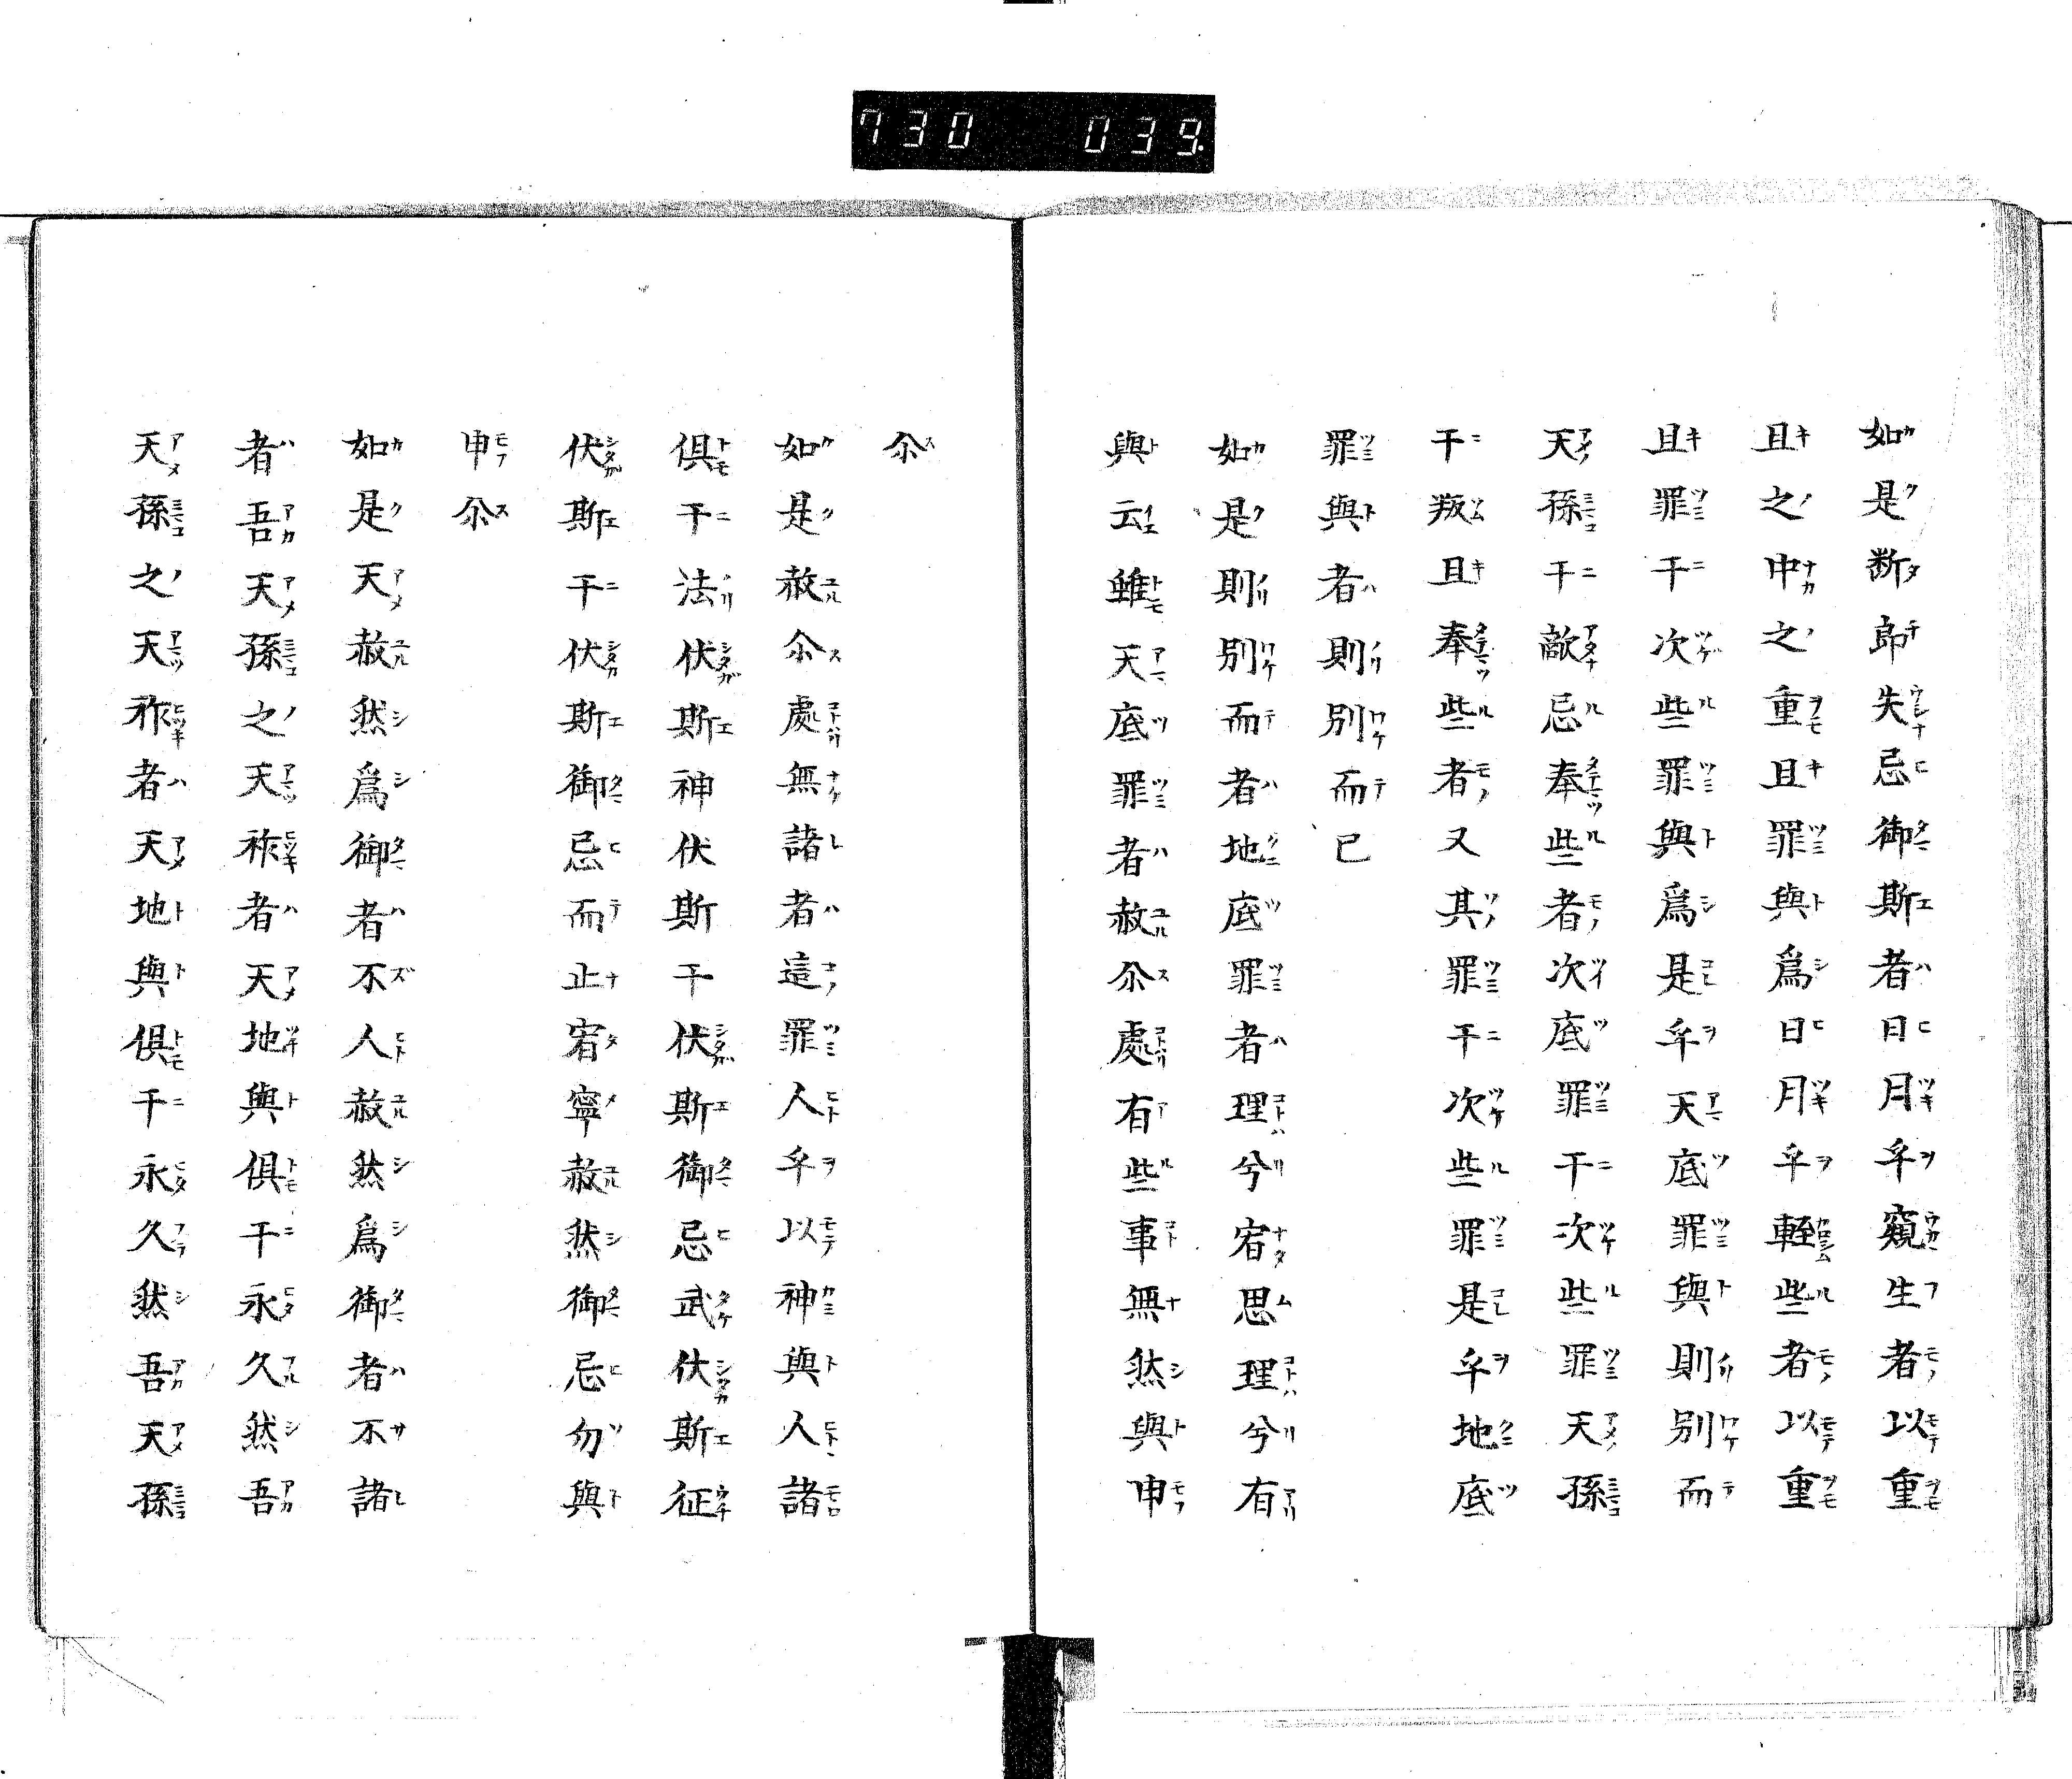 730 039.
如是断郎失忌御斯者日月乎窺生者以重
且之中之重且罪與為日月乎輊些者以重
且罪于次些罪與為是乎天底罪與則別而
天孫于敵忌奉些者次底罪于次些罪天孫
于叛且奉些者又其罪于次些罪是乎地底
罪與者則別而已
如是則別而者地底罪者理兮宕思理兮有
與云雖天底罪者赦尒處有些事無然與申
尒
如是赦尒處無諸者這罪人乎以神與人諸
倶于法伏斯神伏斯于伏斯御忌武伏斯征
伏斯于伏斯御忌而止宕寧赦然御忌勿與
申尒
如是天赦然為御者不人赦然為御者不諸
者吾天孫之天祚者天地與倶于永久然吾
天孫之天祚者天地與倶于永久然吾天孫